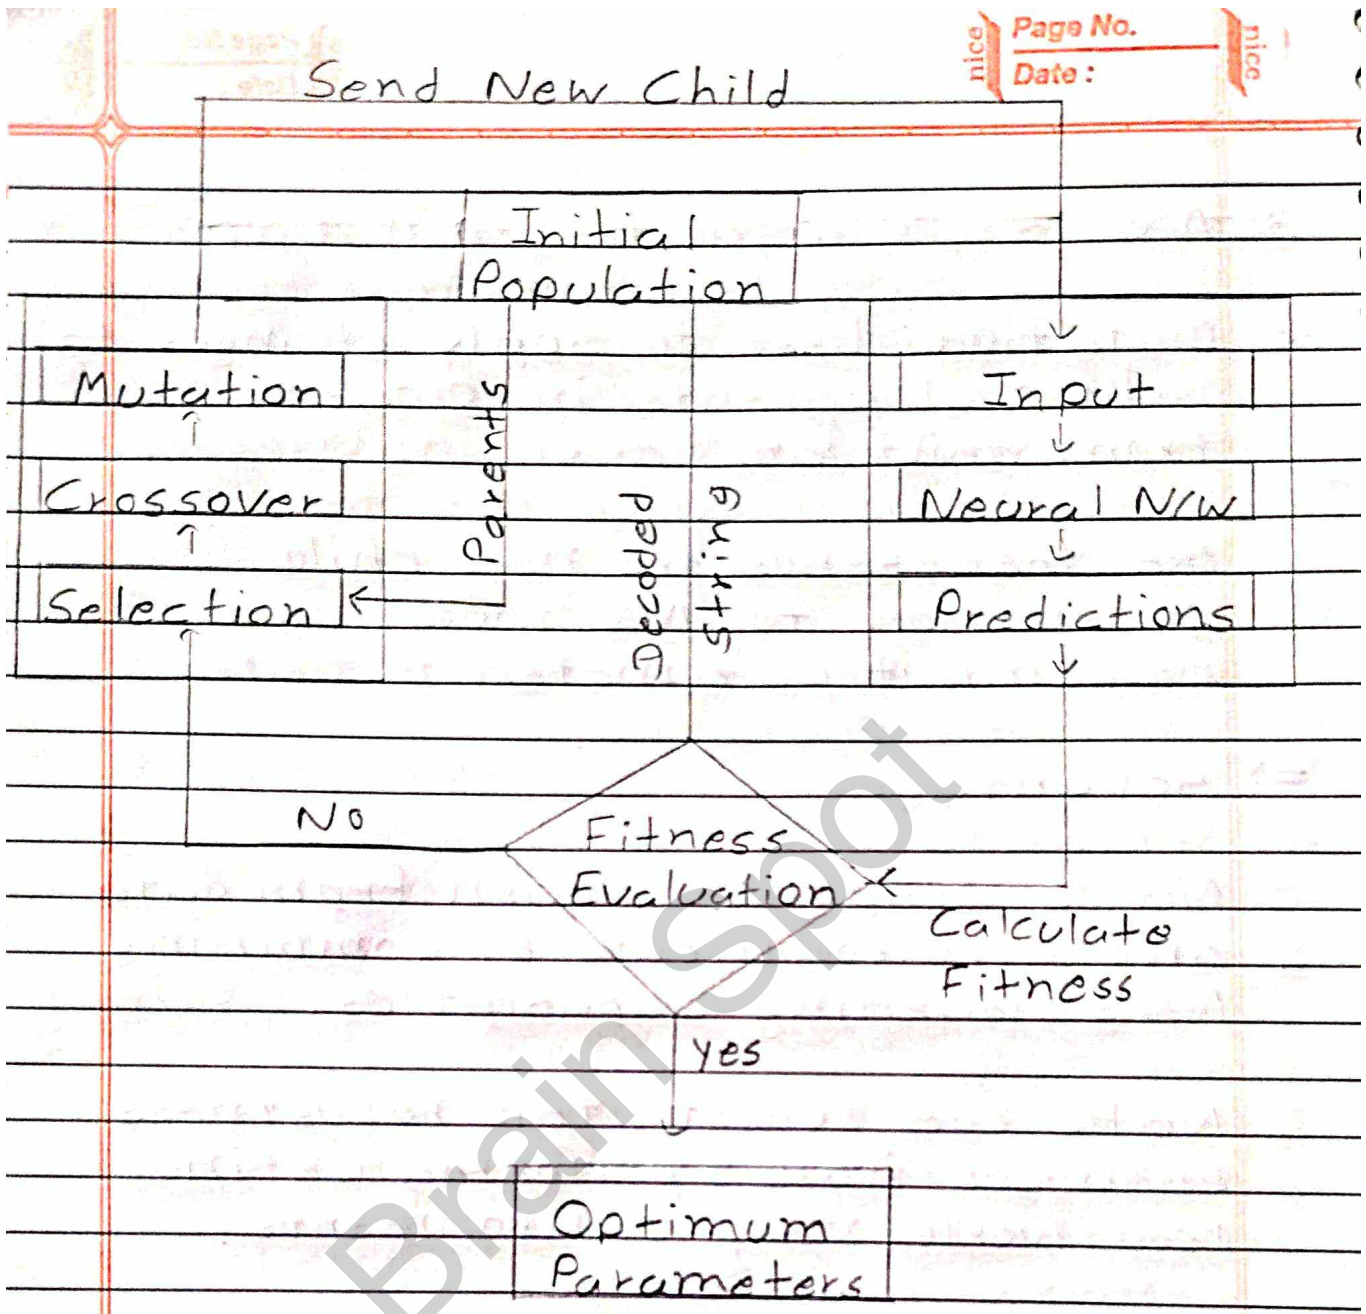 nice
Page No.
Date :
nice
Send New Child
Initial
Population
Mutation
Crossover
Selection
Parents
Decoded
string
Input
Neural N/W
Predictions
No
Fitness
Evaluation
Calculate
Fitness
yes
Optimum
Parameters
Brain Spot